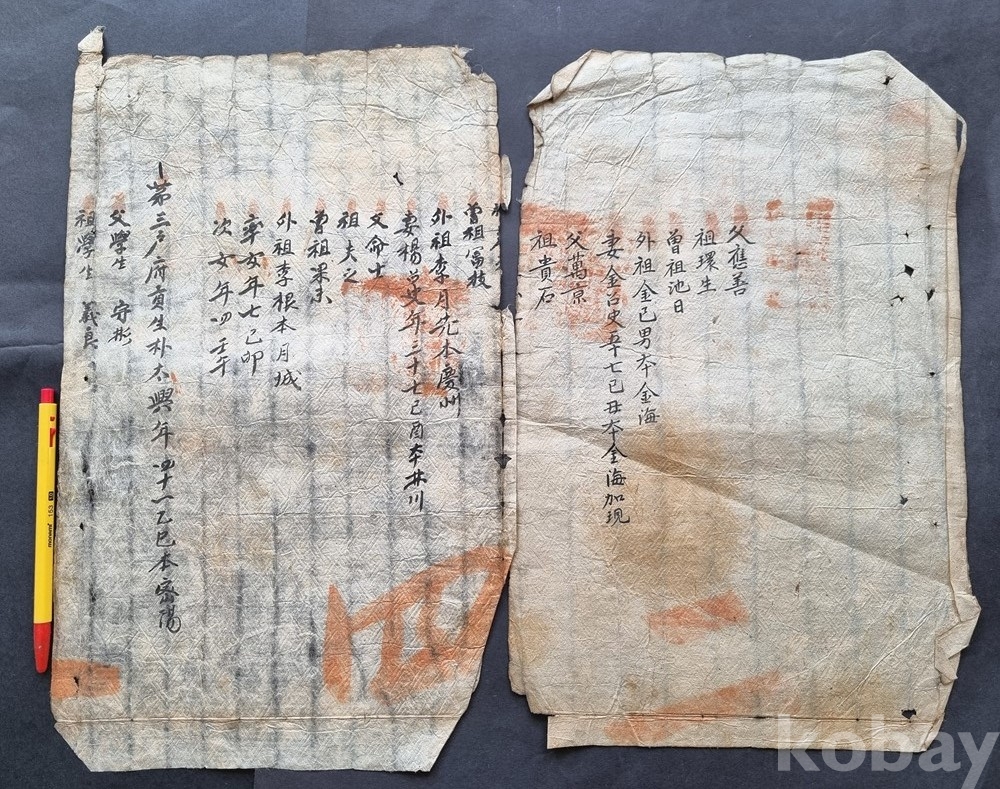 父應善
祖環生
曾祖池日
外祖金已男本金海
妻金召史年七已丑本金海加現
父萬京
祖貴石
曾祖富枝
外祖李月花本慶州
妻楊召史年三十七己酉本林川
父命士
祖夫之
曾祖
外祖李根本月城
率女年七己卯
次女年四壬午
第三戶府貢生朴太興年四十一乙巳本密陽
父學生 守彬
祖學生 義良
monami 153
kobay